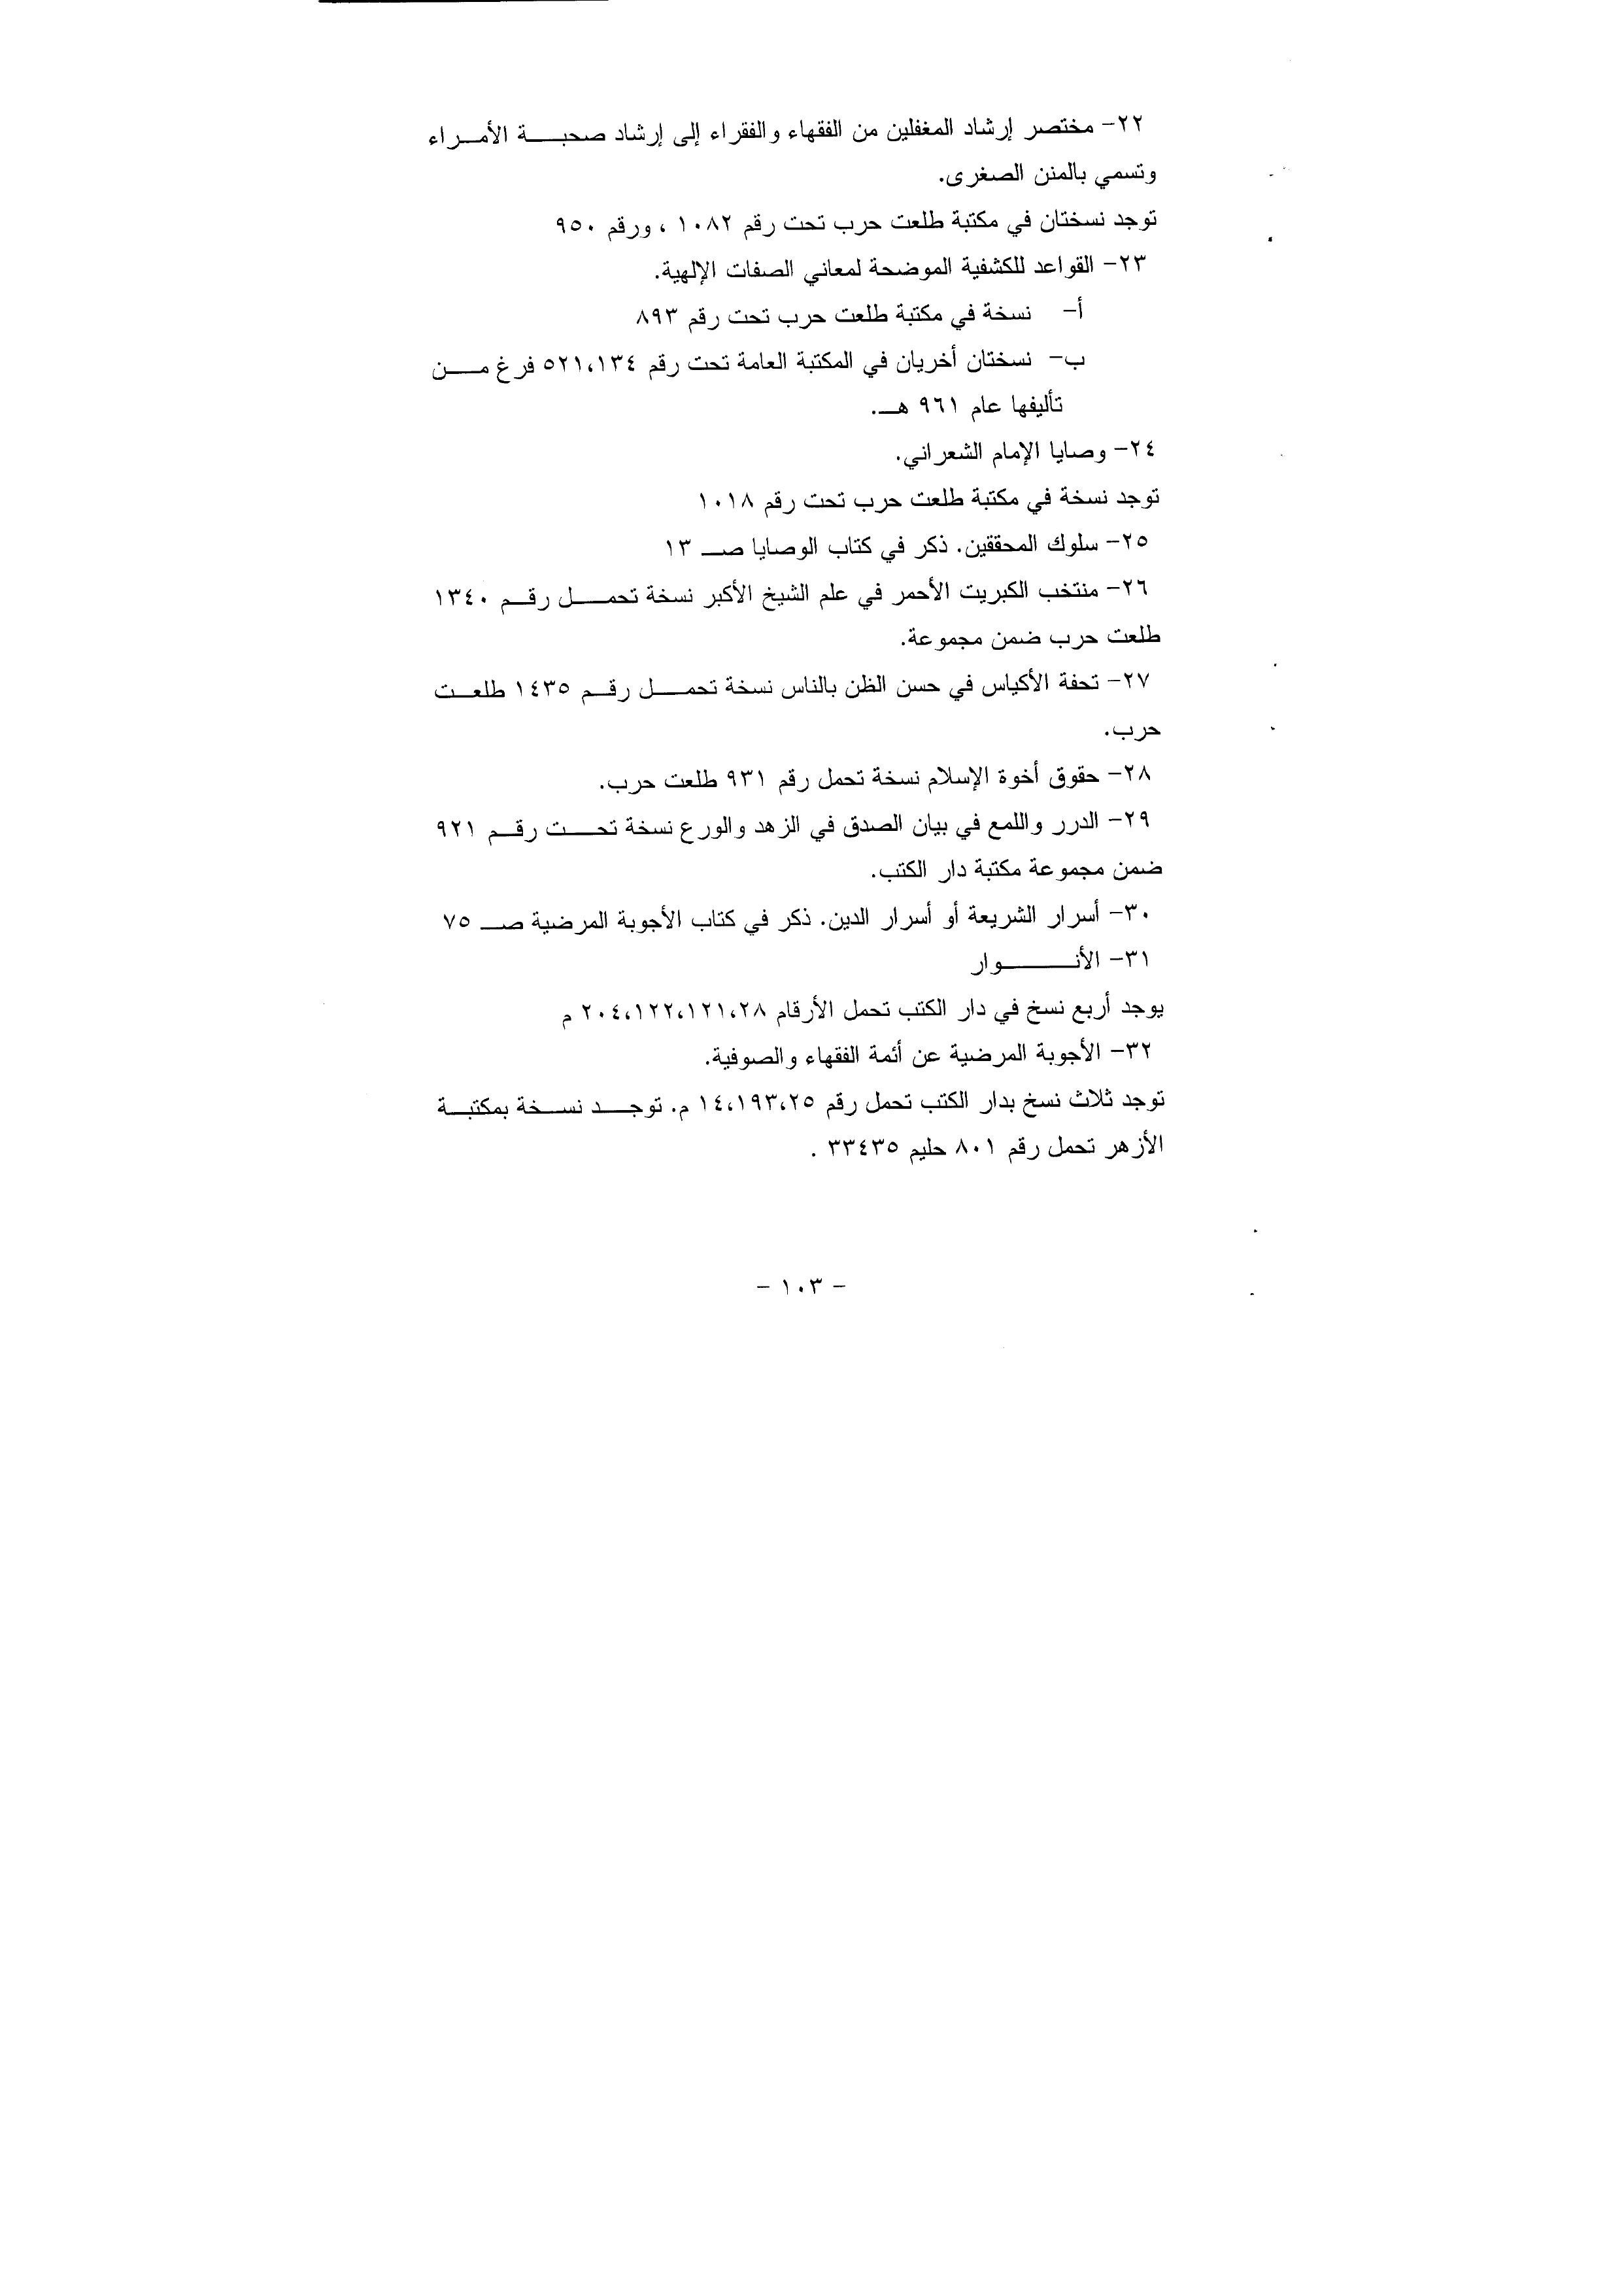 ٢٢- مختصر إرشاد المغفلين من الفقهاء والفقراء إلى إرشاد صحبة الأمراء
وتسمي بالمنن الصغرى.
توجد نسختان في مكتبة طلعت حرب تحت رقم ١٠٨٢ ، ورقم ٩٥٠
٢٣- القواعد للكشفية الموضحة لمعاني الصفات الإلهية.
أ- نسخة في مكتبة طلعت حرب تحت رقم ٨٩٣
ب- نسختان أخريان في المكتبة العامة تحت رقم ٥٢١،١٣٤ فرغ من
تأليفها عام ٩٦١ هـ.
٢٤- وصايا الإمام الشعراني.
توجد نسخة في مكتبة طلعت حرب تحت رقم ١٠١٨
٢٥- سلوك المحققين. ذكر في كتاب الوصايا صـ ١٣
٢٦- منتخب الكبريت الأحمر في علم الشيخ الأكبر نسخة تحمل رقم ١٣٤٠
طلعت حرب ضمن مجموعة.
٢٧- تحفة الأكياس في حسن الظن بالناس نسخة تحمل رقم ١٤٣٥ طلعت
حرب.
٢٨- حقوق أخوة الإسلام نسخة تحمل رقم ٩٣١ طلعت حرب.
٢٩- الدرر واللمع في بيان الصدق في الزهد والورع نسخة تحت رقم ٩٢١
ضمن مجموعة مكتبة دار الكتب.
٣٠- أسرار الشريعة أو أسرار الدين. ذكر في كتاب الأجوبة المرضية صـ ٧٥
٣١- الأنوار
يوجد أربع نسخ في دار الكتب تحمل الأرقام ٢٠٤،١٢٢،١٢١،٢٨ م
٣٢- الأجوبة المرضية عن أئمة الفقهاء والصوفية.
توجد ثلاث نسخ بدار الكتب تحمل رقم ١٤،١٩٣،٢٥ م. توجد نسخة بمكتبة
الأزهر تحمل رقم ٨٠١ حليم ٣٣٤٣٥ .
- ١٠٣ -